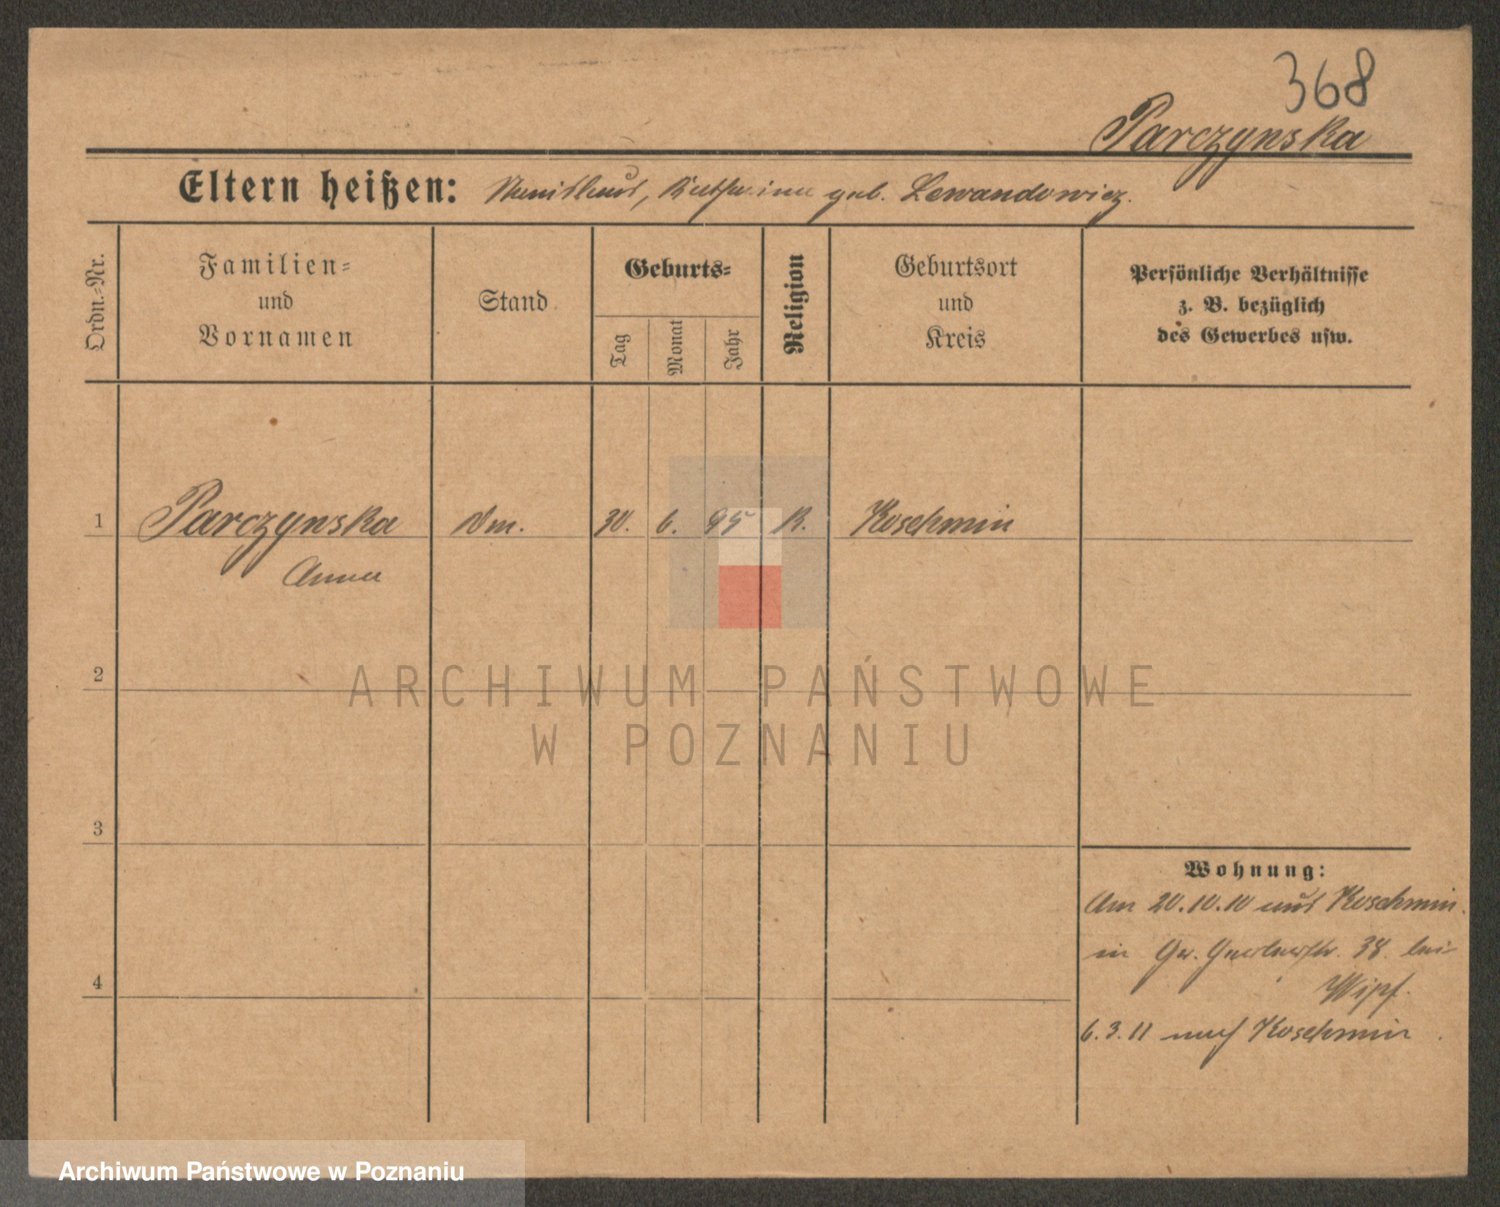 368
Parczynska
Eltern heißen: Stanislaus, Katharina geb. Lewandowicz.
Ordn.-Nr.
Familien-
und
Vornamen
Stand
Geburts-
Tag
Monat
Jahr
Religion
Geburtsort
und
Kreis
Persönliche Verhältnisse
z. B. bezüglich
des Gewerbes usw.
1 Parczynska Dm. 30. 6. 95 K. Koschmin
Anna
2
3
4
Wohnung:
Am 20.10.10 aus Koschmin.
in Gr. 38. bei
6.3.11 nach Koschmin
ARCHIWUM PAŃSTWOWE
W POZNANIU
Archiwum Państwowe w Poznaniu